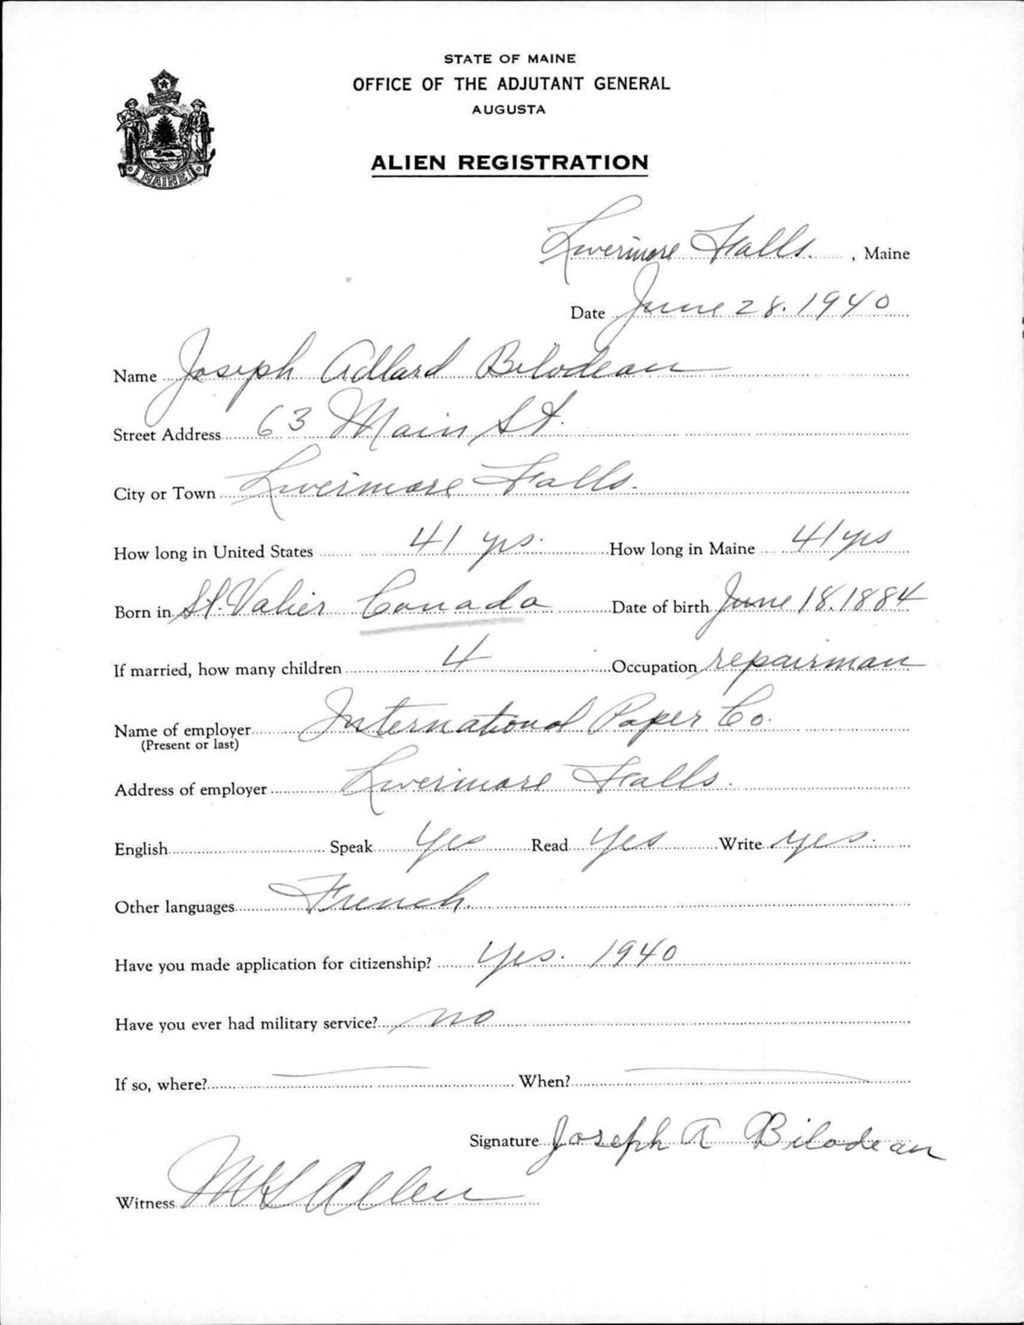 STATE OF MAINE
OFFICE OF THE ADJUTANT GENERAL
AUGUSTA
ALIEN REGISTRATION
MAINE
Livermore Falls. , Maine
Date June 28. 1940
Name Joseph Adlard Bilodeau
Street Address 63 Main St.
City or Town Livermore Falls.
How long in United States 41 yrs. How long in Maine 41 yrs
Born in St. Valier Canada Date of birth June 18. 1884
If married, how many children 4 Occupation repairman
Name of employer International Paper Co.
(Present or last)
Address of employer Livermore Falls.
English Speak Yes Read Yes Write yes.
Other languages French.
Have you made application for citizenship? Yes. 1940
Have you ever had military service? no
If so, where? When?
Signature Joseph A Bilodeau
Witness Allen